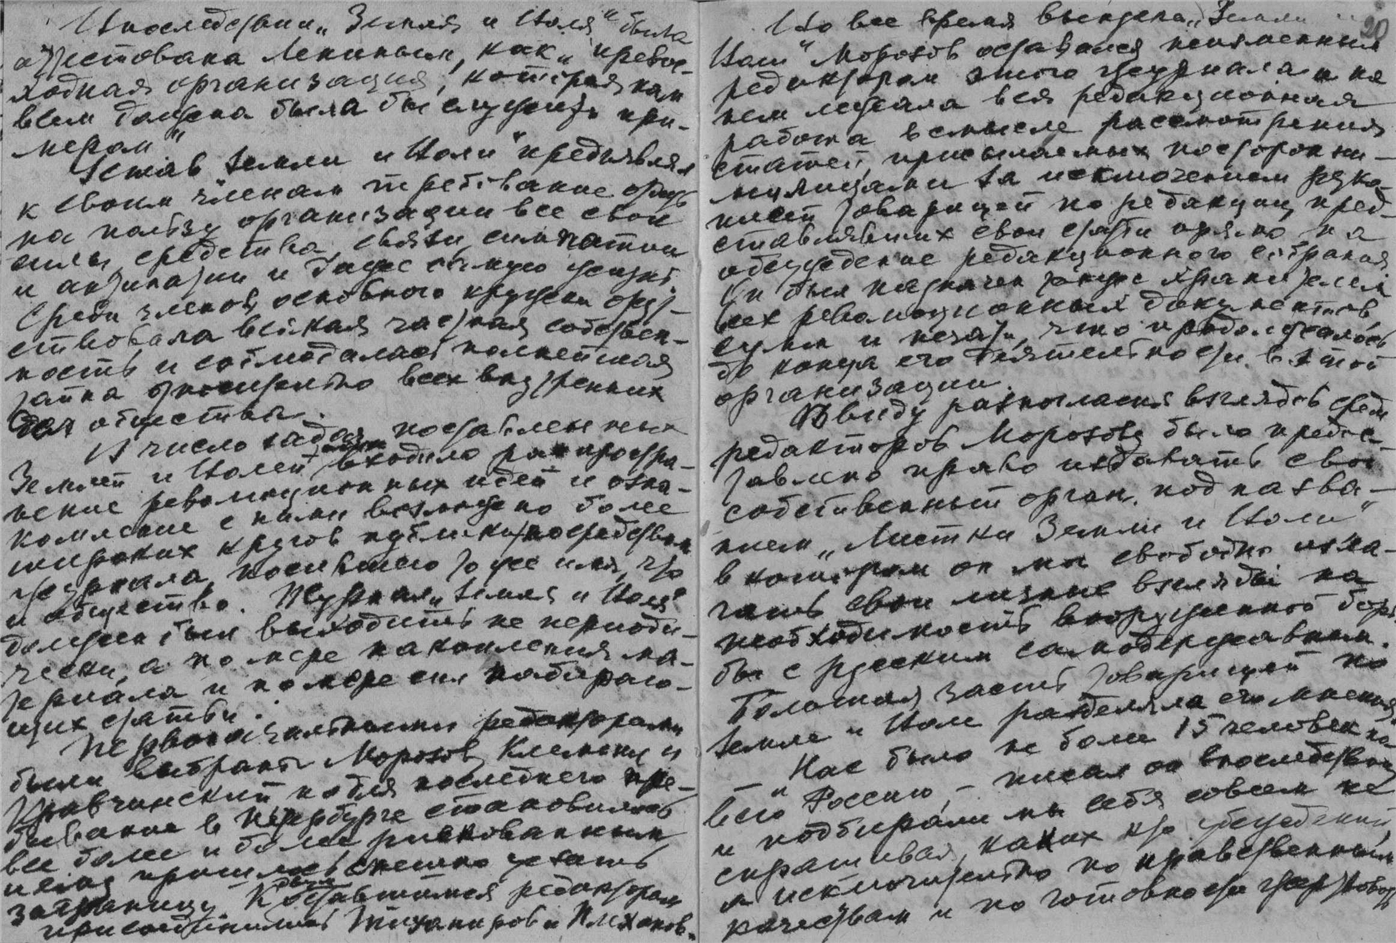 Впоследствии „Земля и Воля" была
аттестована Лениным, как „превос-
ходная организация, которая нам
всем должна была бы служить при-
мером"
Устав „Земли и Воли" предъявлял
к своим членам требование отдать
на пользу организации все свои
силы, средства, связи, симпатии
и антипатии и даже самую жизнь.
Среди членов основного кружка отсут-
ствовала всякая частная собствен-
ность и соблюдалась полнейшая
тайна относительно всех внутренних
дел общества.
В число задач поставленных
Землей и Волей входило распростра-
нение революционных идей и озна-
комление с ними возможно более
широких кругов публики посредством
журнала, носившего то же имя, что
и общество. Журнал „Земля и Воля"
должен был выходить не периоди-
чески, а по мере накопления ма-
териала и по мере сил набираю-
щих статьи.
Первоначальными редакторами
были выбраны Морозов, Клеменц и
Кравчинский но для последнего пре-
бывание в Петербурге становилось
все более и более рискованным
и ему пришлось спешно уехать
заграницу. К оставшимся редакторам
присоединились Тихомиров и Плеханов.
20
Во все время выхода „Земли и
Воли" Морозов оставался неизменным
редактором этого журнала и на
нем лежала вся редакционная
работа в смысле рассмотрения
статей, присылаемых посторонни-
ми лицами за исключением руко-
писей товарищей по редакции, пред-
ставлявших свои статьи прямо на
обсуждение редакционного собрания
Он был назначен также хранителем
всех революционных документов,
сумм и печати, что продолжалось
до конца его деятельности в этой
организации.
Ввиду разногласия взглядов среди
редакторов Морозову было предос-
тавлено право издавать свой
собственный орган под назва-
нием „Листка Земли и Воли"
в котором он мог свободно изла-
гать свои личные взгляды на
необходимость вооруженной борь-
бы с русским самодержавием.
Большая часть товарищей по
Земле и Воле разделяла его мнения
"Нас было не более 15 человек на
всю Россию, – писал он впоследствии
и подбирали мы себя совсем не
спрашивая, каких кто убеждений
а исключительно по нравственным
качествам и по готовности жертвовать